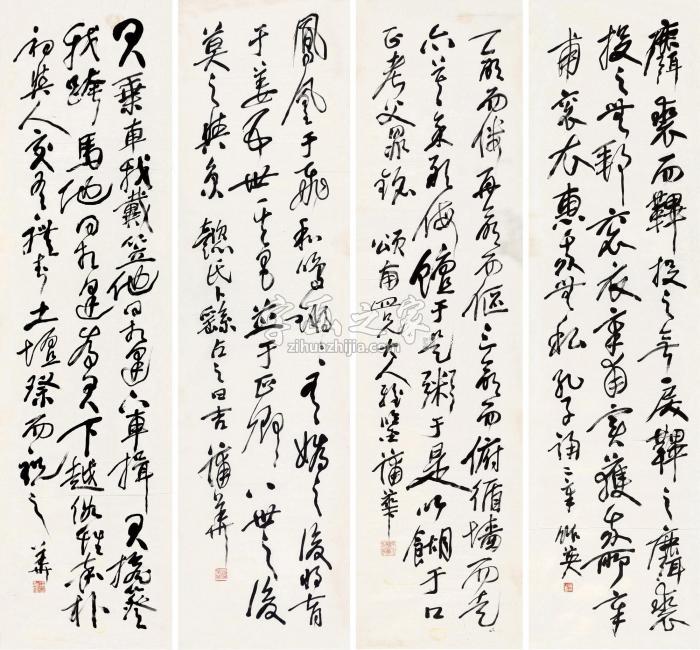 麛裘而鞞投之無戾鞞之麛裘
投之無郵袞衣章甫實獲我所章
甫袞衣惠我無私 孔子誦二章 作英
一命而僂再命而傴三命而俯循墻而走
亦莫余敢侮饘于是粥于是以餬于口
正考父鼎銘 頌南四兄大人雅鑒 蒲華
鳳凰于飛和鳴鏘〻有媯之後將育
于姜五世其昌並于正卿八世之後
莫之與京 懿氏卜繇占之曰吉 蒲華
君乘車我戴笠他日相逢下車揖 君擔簦
我跨馬他日相逢為君下 越俗性率朴
初與人交有禮封土壇祭而祝之 華
字画之家
zihuazhijia.com